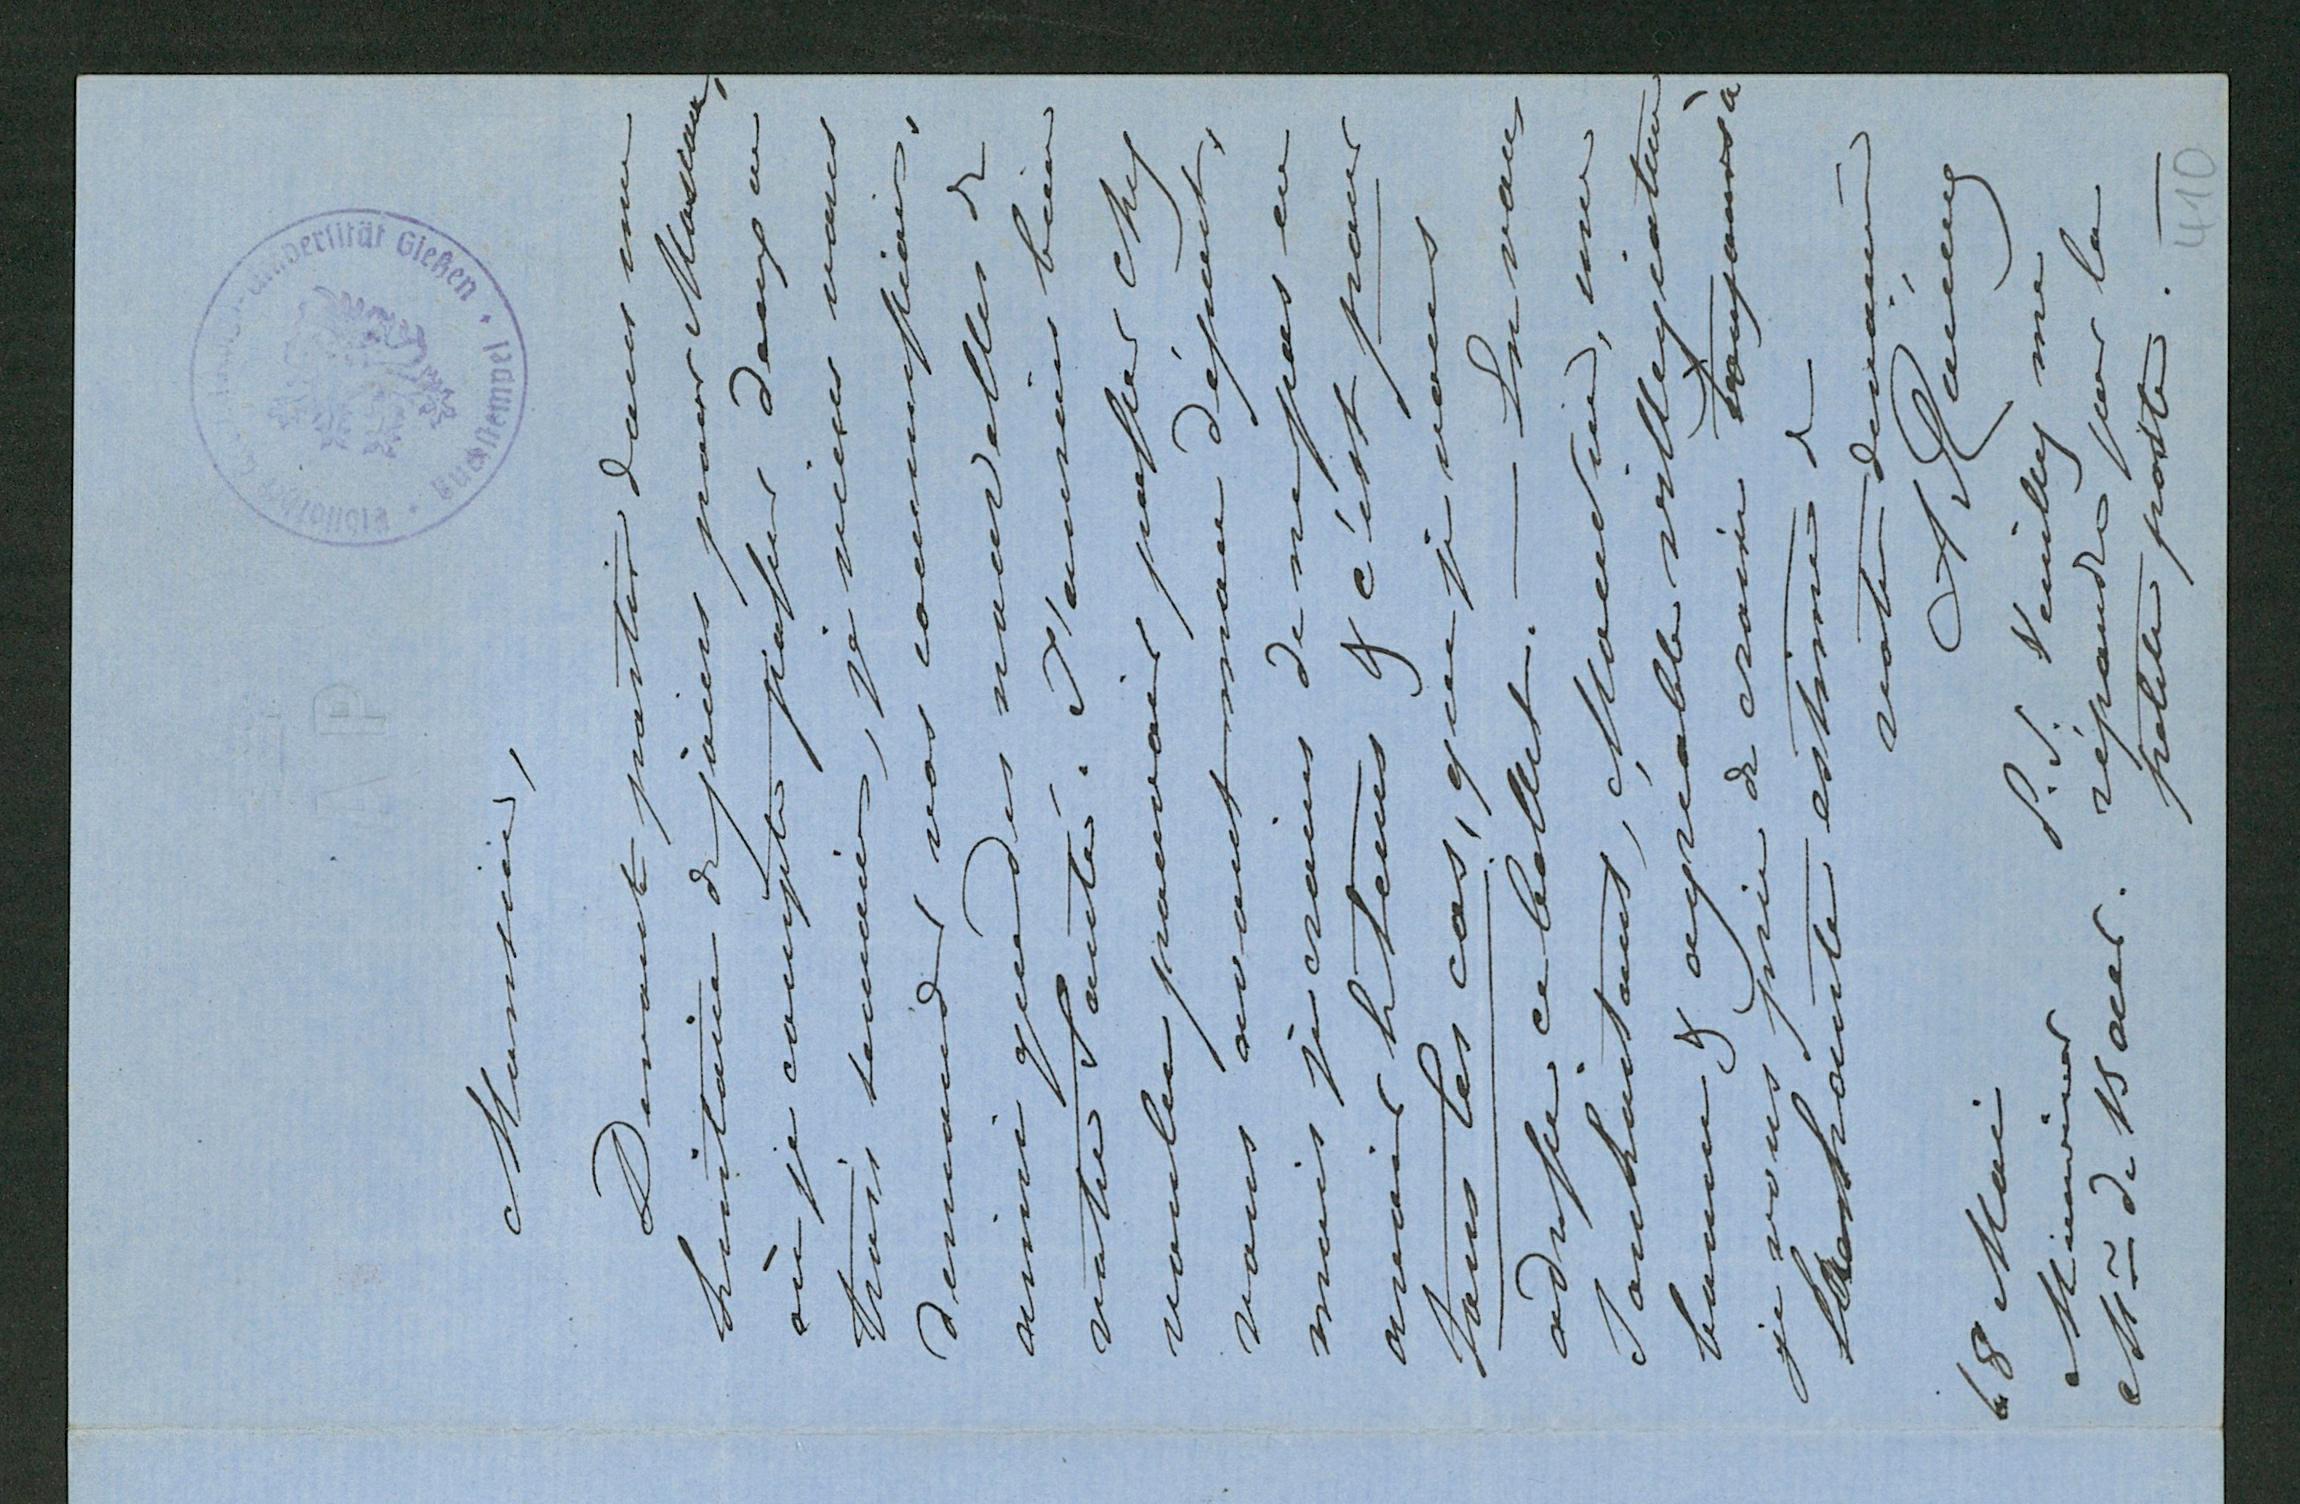 Monsieur,
Devant partir dans une
huitaine de jours pour Moscou,
où je compte passer deux ou
trois semaines, je viens vous
demander vos commissions,
ainsi que des nouvelles de
votre santé. J'aurais bien
voulu pouvoir passer chez
vous avant mon départ,
mais je crains de ne pas en
avoir le tems & c'est pour
tous les cas, que je vous
adresse ce billet. — En vous
souhaitant, Monsieur, une
bonne & agréable villégiature
je vous prie de croire toujours à
la haute estime de
votre dévoué
68 Mai
P. S. Veuillez me
répondre par la
petite poste. —
Monsieur
Mr de Baer.
410
Universität Gießen